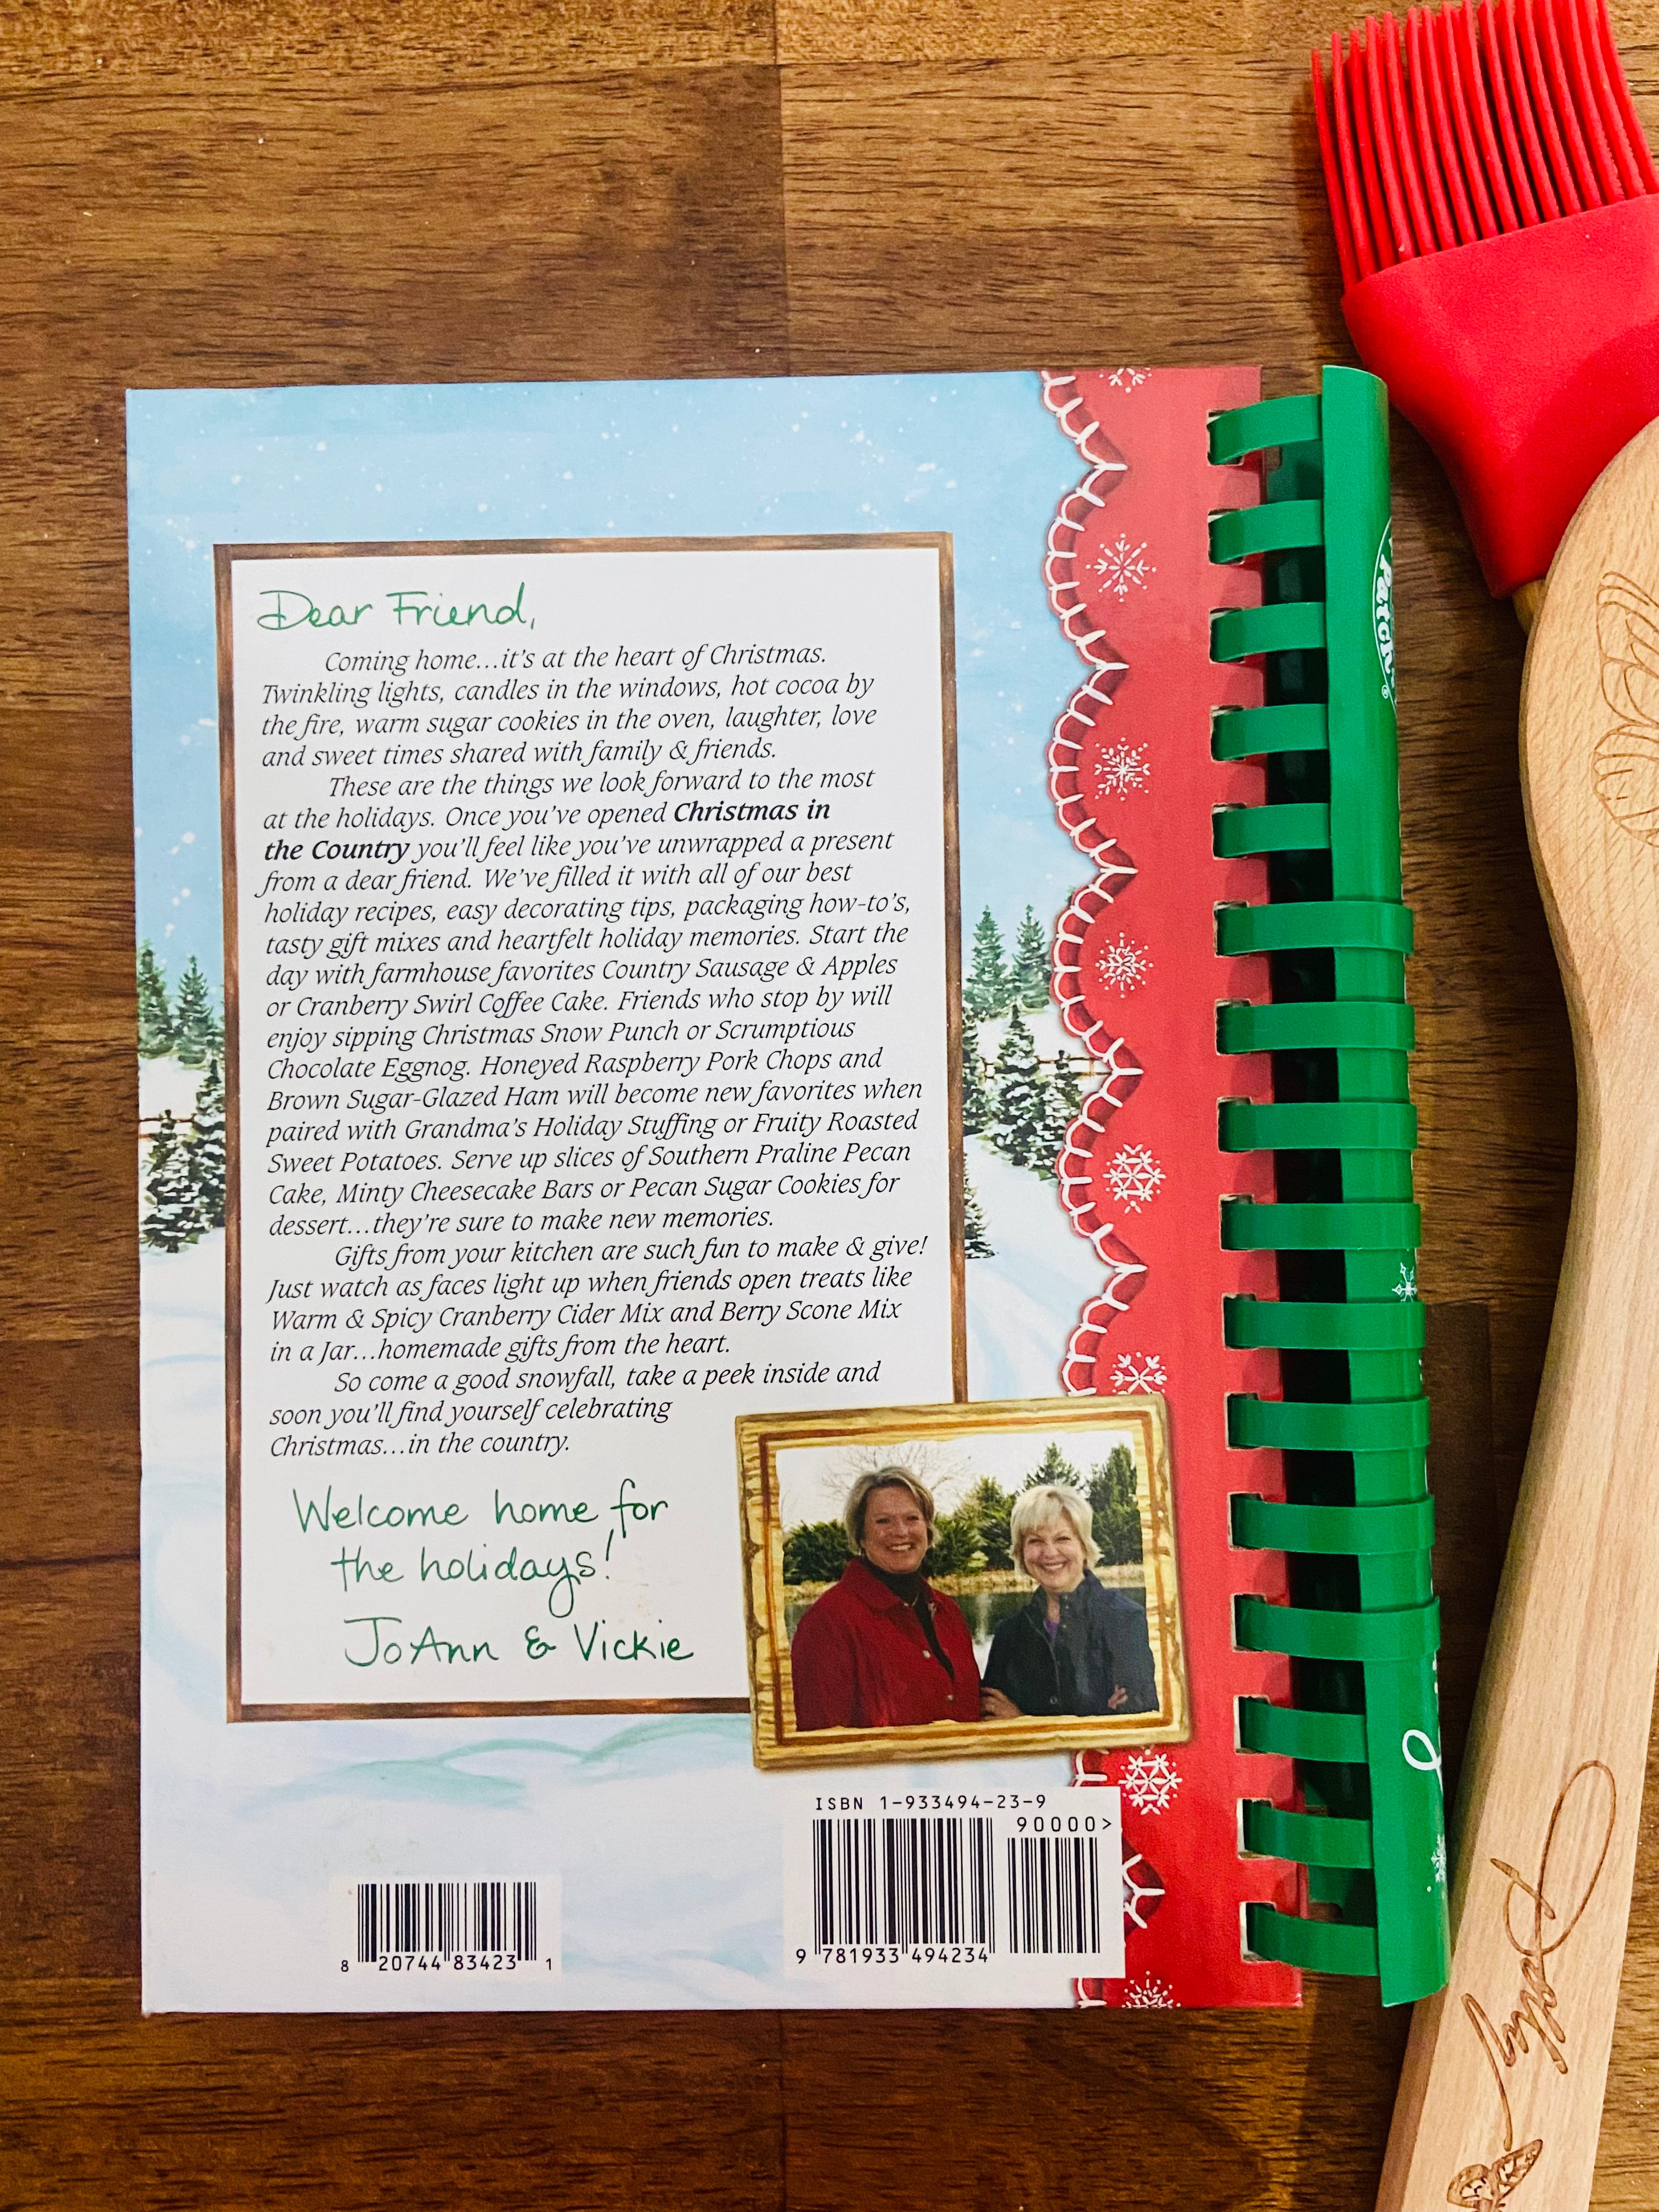 Dear Friend,
Coming home...it's at the heart of Christmas.
Twinkling lights, candles in the windows, hot cocoa by
the fire, warm sugar cookies in the oven, laughter, love
and sweet times shared with family & friends.
These are the things we look forward to the most
at the holidays. Once you've opened Christmas in
the Country you'll feel like you've unwrapped a present
from a dear friend. We've filled it with all of our best
holiday recipes, easy decorating tips, packaging how-to's,
tasty gift mixes and heartfelt holiday memories. Start the
day with farmhouse favorites Country Sausage & Apples
or Cranberry Swirl Coffee Cake. Friends who stop by will
enjoy sipping Christmas Snow Punch or Scrumptious
Chocolate Eggnog. Honeyed Raspberry Pork Chops and
Brown Sugar-Glazed Ham will become new favorites when
paired with Grandma's Holiday Stuffing or Fruity Roasted
Sweet Potatoes. Serve up slices of Southern Praline Pecan
Cake, Minty Cheesecake Bars or Pecan Sugar Cookies for
dessert...they're sure to make new memories.
Gifts from your kitchen are such fun to make & give!
Just watch as faces light up when friends open treats like
Warm & Spicy Cranberry Cider Mix and Berry Scone Mix
in a Jar...homemade gifts from the heart.
So come a good snowfall, take a peek inside and
soon you'll find yourself celebrating
Christmas...in the country.
Welcome home for
the holidays!
JoAnn & Vickie
ISBN 1-933494-23-9
90000>
9 781933 494234
8 20744 83423 1
Patch®